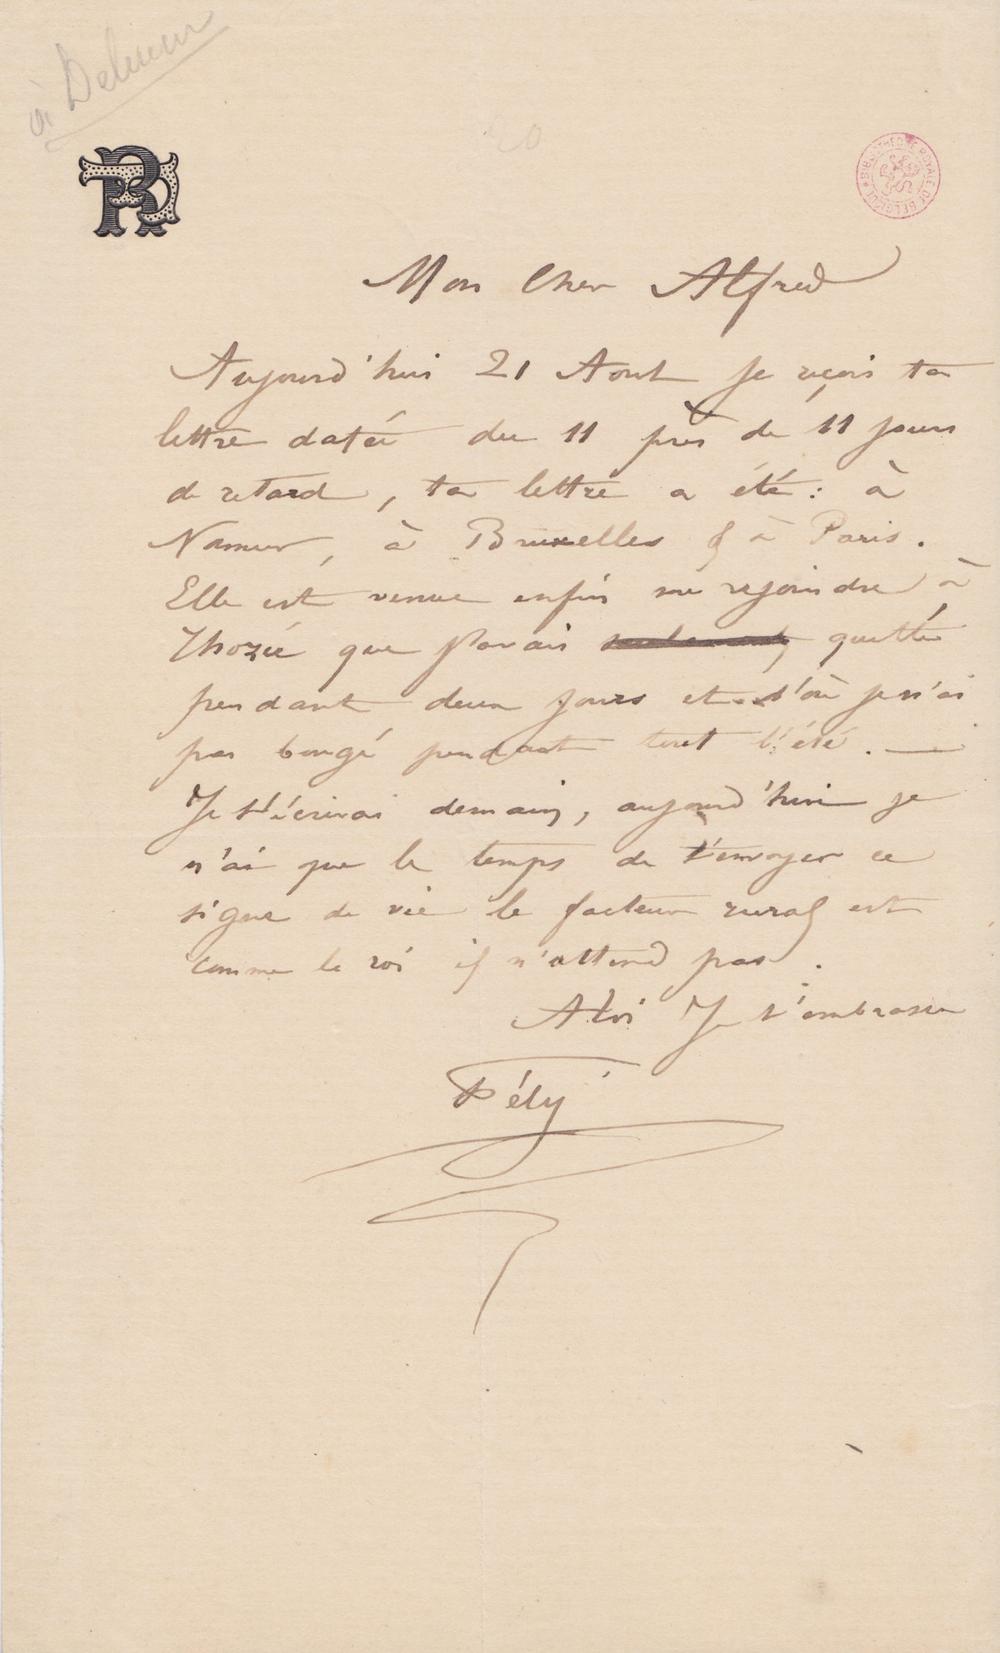 à Delvau
20
BIBLIOTHÈQUE ROYALE DE BELGIQUE
Mon Cher Alfred
Aujourd'hui 21 Aout je reçois ta
lettre datée du 11 près de 11 jours
de retard, ta lettre a été: à
Namur, à Bruxelles & à Paris.
Elle est venue enfin me rejoindre à
Thozée que j'avais quitté
pendant deux jours et d'où je n'ai
pas bougé pendant tout l'été. —
Je t'écrirai demain, aujourd'hui je
n'ai que le temps de t'envoyer ce
signe de vie le facteur rural est
comme le roi il n'attend pas.
A toi Je t'embrasse
Fély